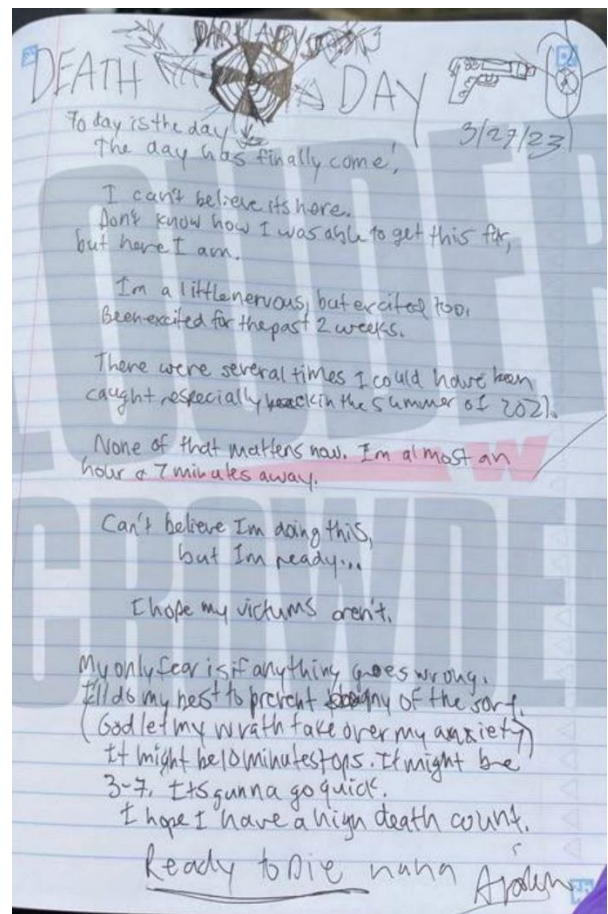 DARK ABYSS
DEATH DAY
3/27/23
Today is the day
The day has finally come!
I can't believe its here.
Don't know how I was able to get this far,
but here I am.
I'm a little nervous, but excited too.
Been excited for the past 2 weeks.
There were several times I could have been
caught especially back in the summer of 2021.
None of that matters now. Im almost an
hour & 7 minutes away.
Can't believe Im doing this,
but Im ready...
I hope my victums aren't.
My only fear is if anything goes wrong.
I'll do my best to prevent any of the sort.
(God let my wrath take over my anxiety)
It might be 10 minutes tops. It might be
3-7. Its gunna go quick.
I hope I have a high death count.
Ready to Die haha
LOUDER
W
CROWDER